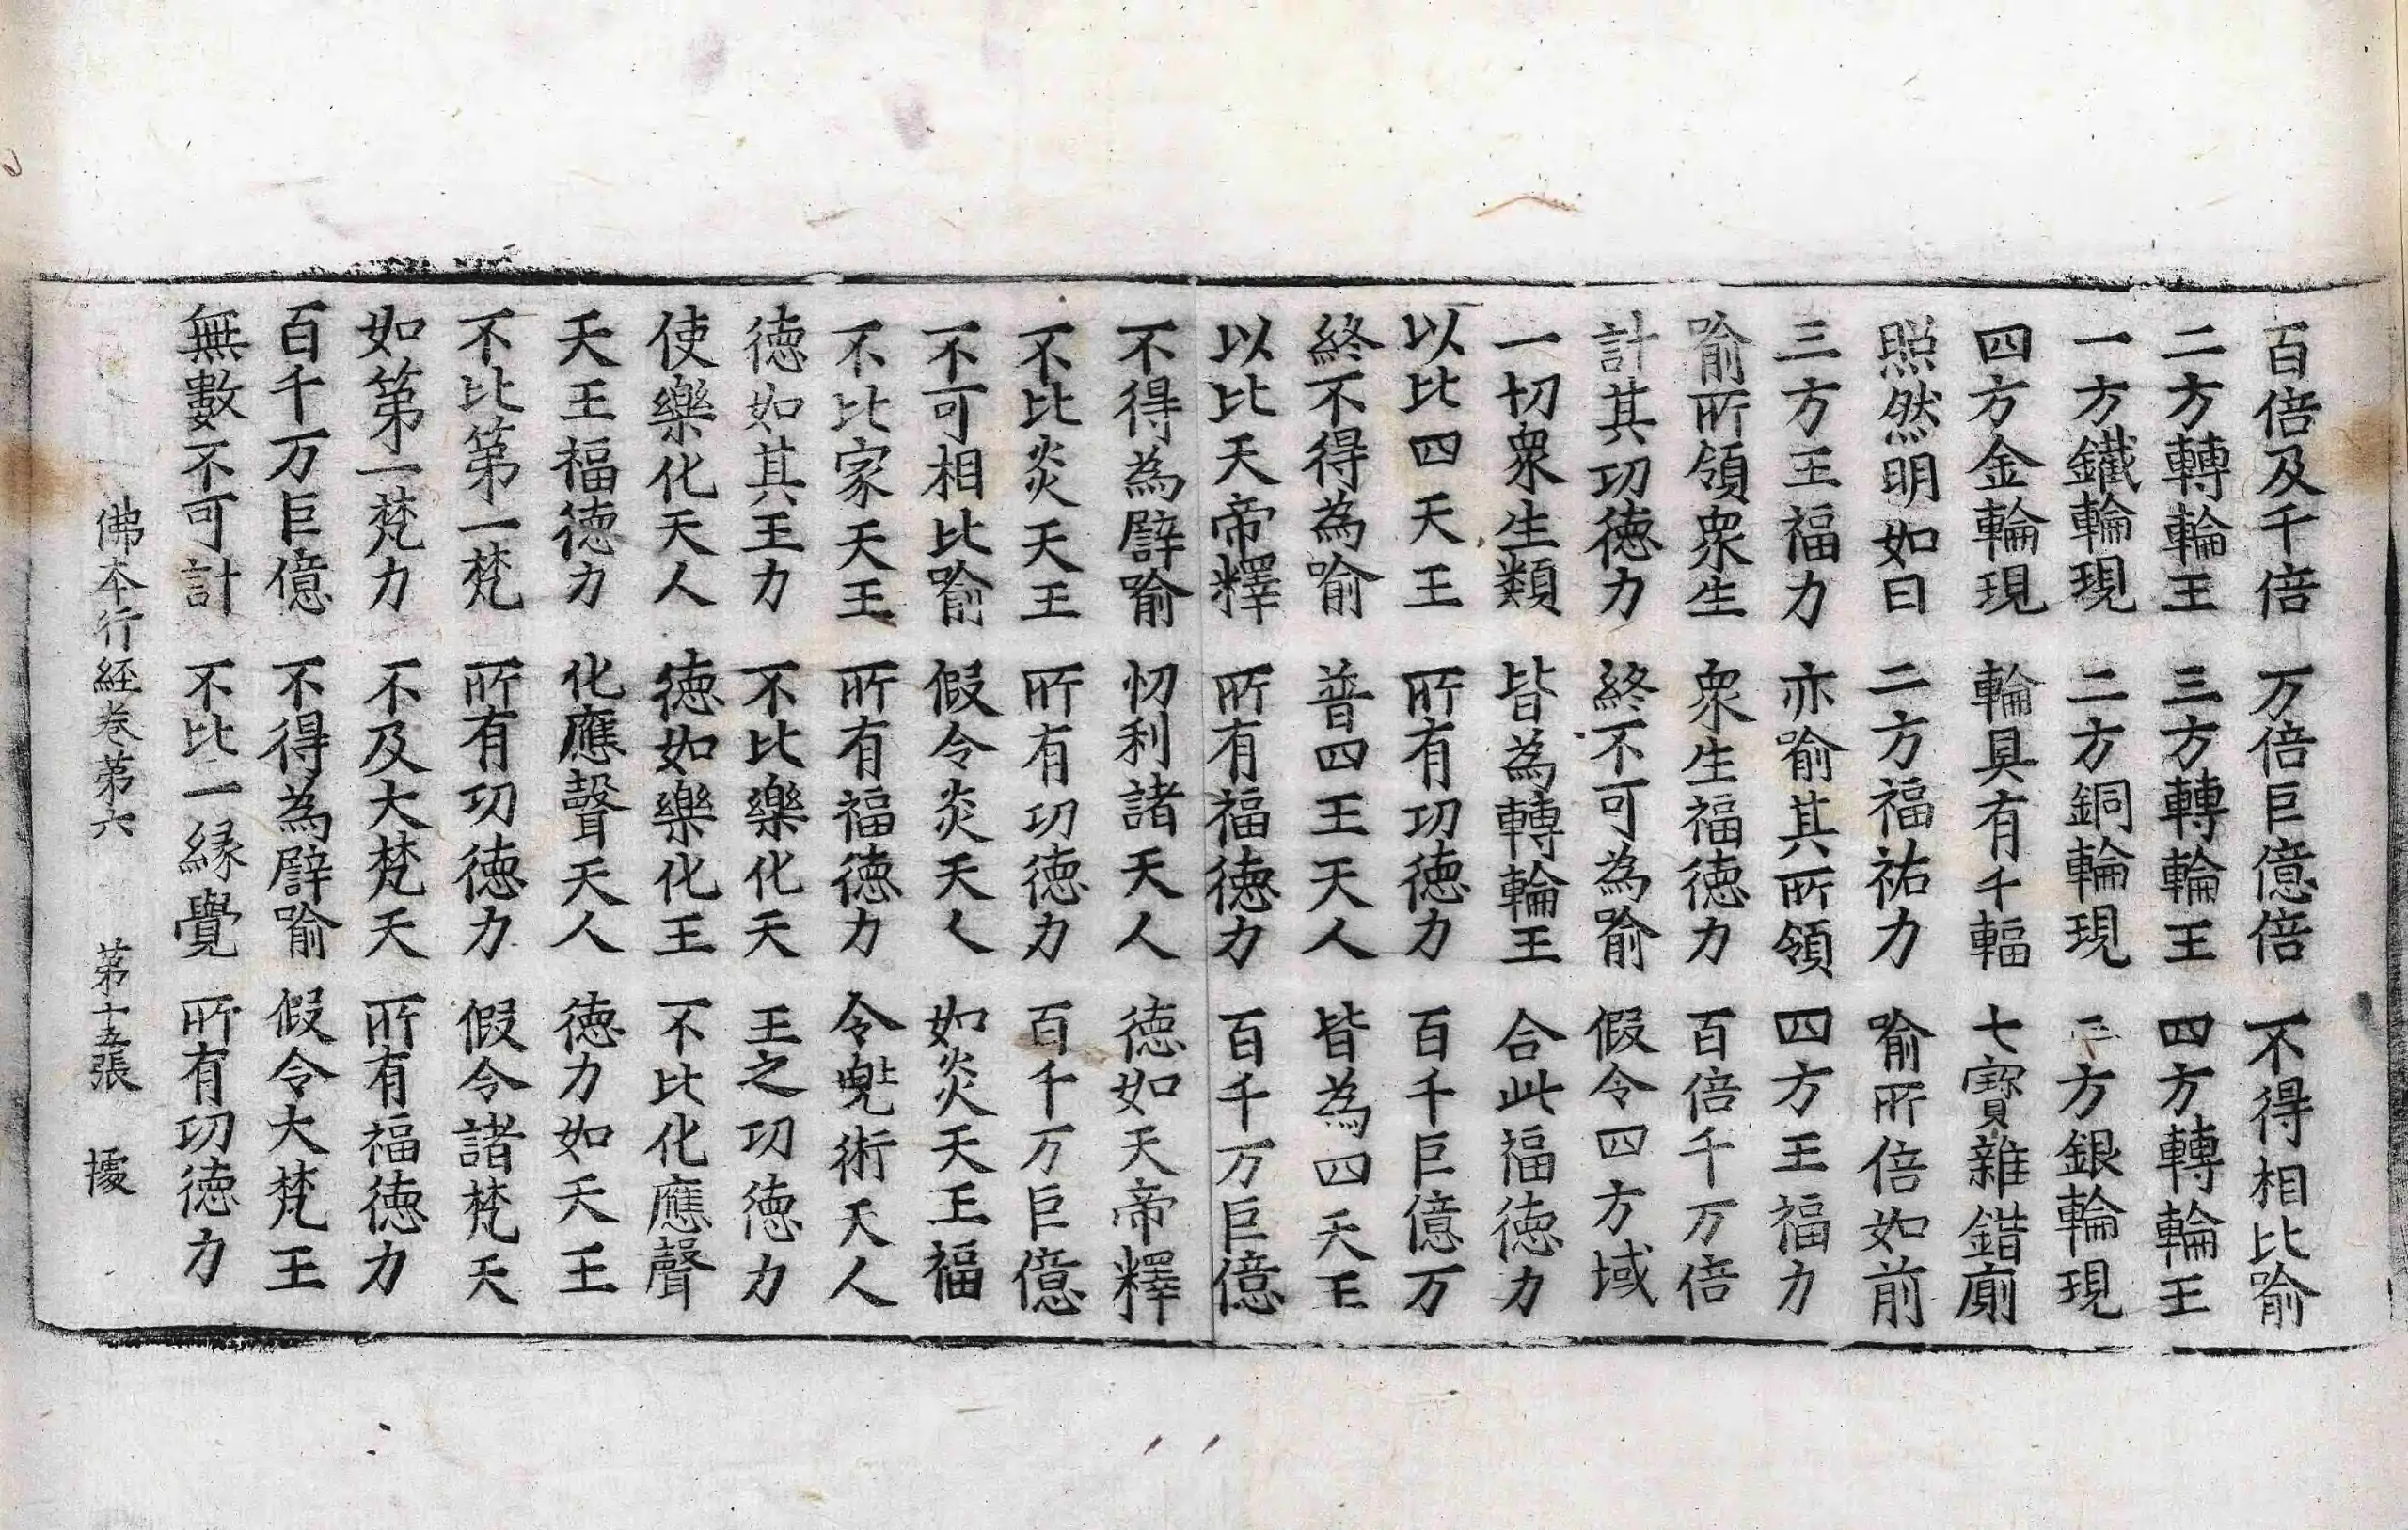 百倍及千倍　万倍巨億倍　不得相比喻
二方轉輪王　三方轉輪王　四方轉輪王
一方鐵輪現　二方銅輪現　三方銀輪現
四方金輪現　輪具有千輻　七寶雜錯廁
照然明如日　二方福祐力　喻所倍如前
三方王福力　亦喻其所領　四方王福力
喻所領衆生　衆生福徳力　百倍千万倍
計其功徳力　終不可為喻　假令四方域
一切衆生類　皆為轉輪王　合此福徳力
以比四天王　所有功徳力　百千巨億万
終不得為喻　普四王天人　皆為四天王
以比天帝釋　所有福徳力　百千万巨億
不得為譬喻　忉利諸天人　徳如天帝釋
不比炎天王　所有功徳力　百千万巨億
不可相比喻　假令炎天人　如炎天王福
不比家天王　所有福徳力　令兠術天人
徳如其王力　不比樂化天　王之功徳力
使樂化天人　徳如樂化王　不比化應聲
天王福徳力　化應聲天人　徳力如天王
不比第一梵　所有功徳力　假令諸梵天
如第一梵力　不及大梵天　所有福徳力
百千万巨億　不得為譬喻　假令大梵王
無數不可計　不比一縁覺　所有功徳力
佛本行經卷第六　第十五張　㩀